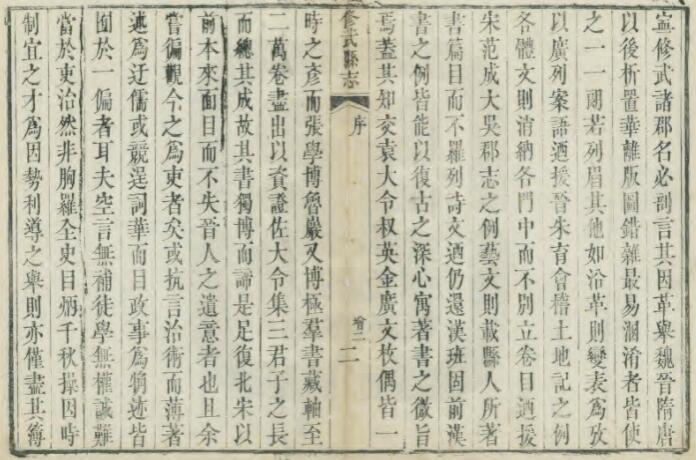 寍修武諸郡名必剖言其因革舉魏晉隋唐
以後析置華離版圖錯雜最易溷淆者皆使
之一一團若列眉其他如沿革則變表為攷
以廣列案語迺援晉朱育會稽土地記之例
各體文則消納各門中而不別立卷目迺援
宋范成大吳郡志之例藝文則載縣人所著
書篇目而不羅列詩文迺仍還漢班固前漢
書之例皆能以復古之深心寓著書之微旨
焉葢其知交袁大令叔英金廣文枚偶皆一
修武縣志
序
卷二 二
時之彥而張學博魯巖又博極羣書藏軸至
二萬卷盡出以資證佐大令集三君子之長
而總其成故其書獨博而諦是足復北宋以
前本來面目而不失晉人之遺意者也且余
嘗徧觀今之為吏者矣或抗言治術而薄著
述為迂儒或競逞詞華而目政事為觕迹皆
囿於一偏者耳夫空言無補徒學無權誠難
當於吏治然非胸羅全史目炳千秋操因時
制宜之才為因勢利導之舉則亦僅盡其簿